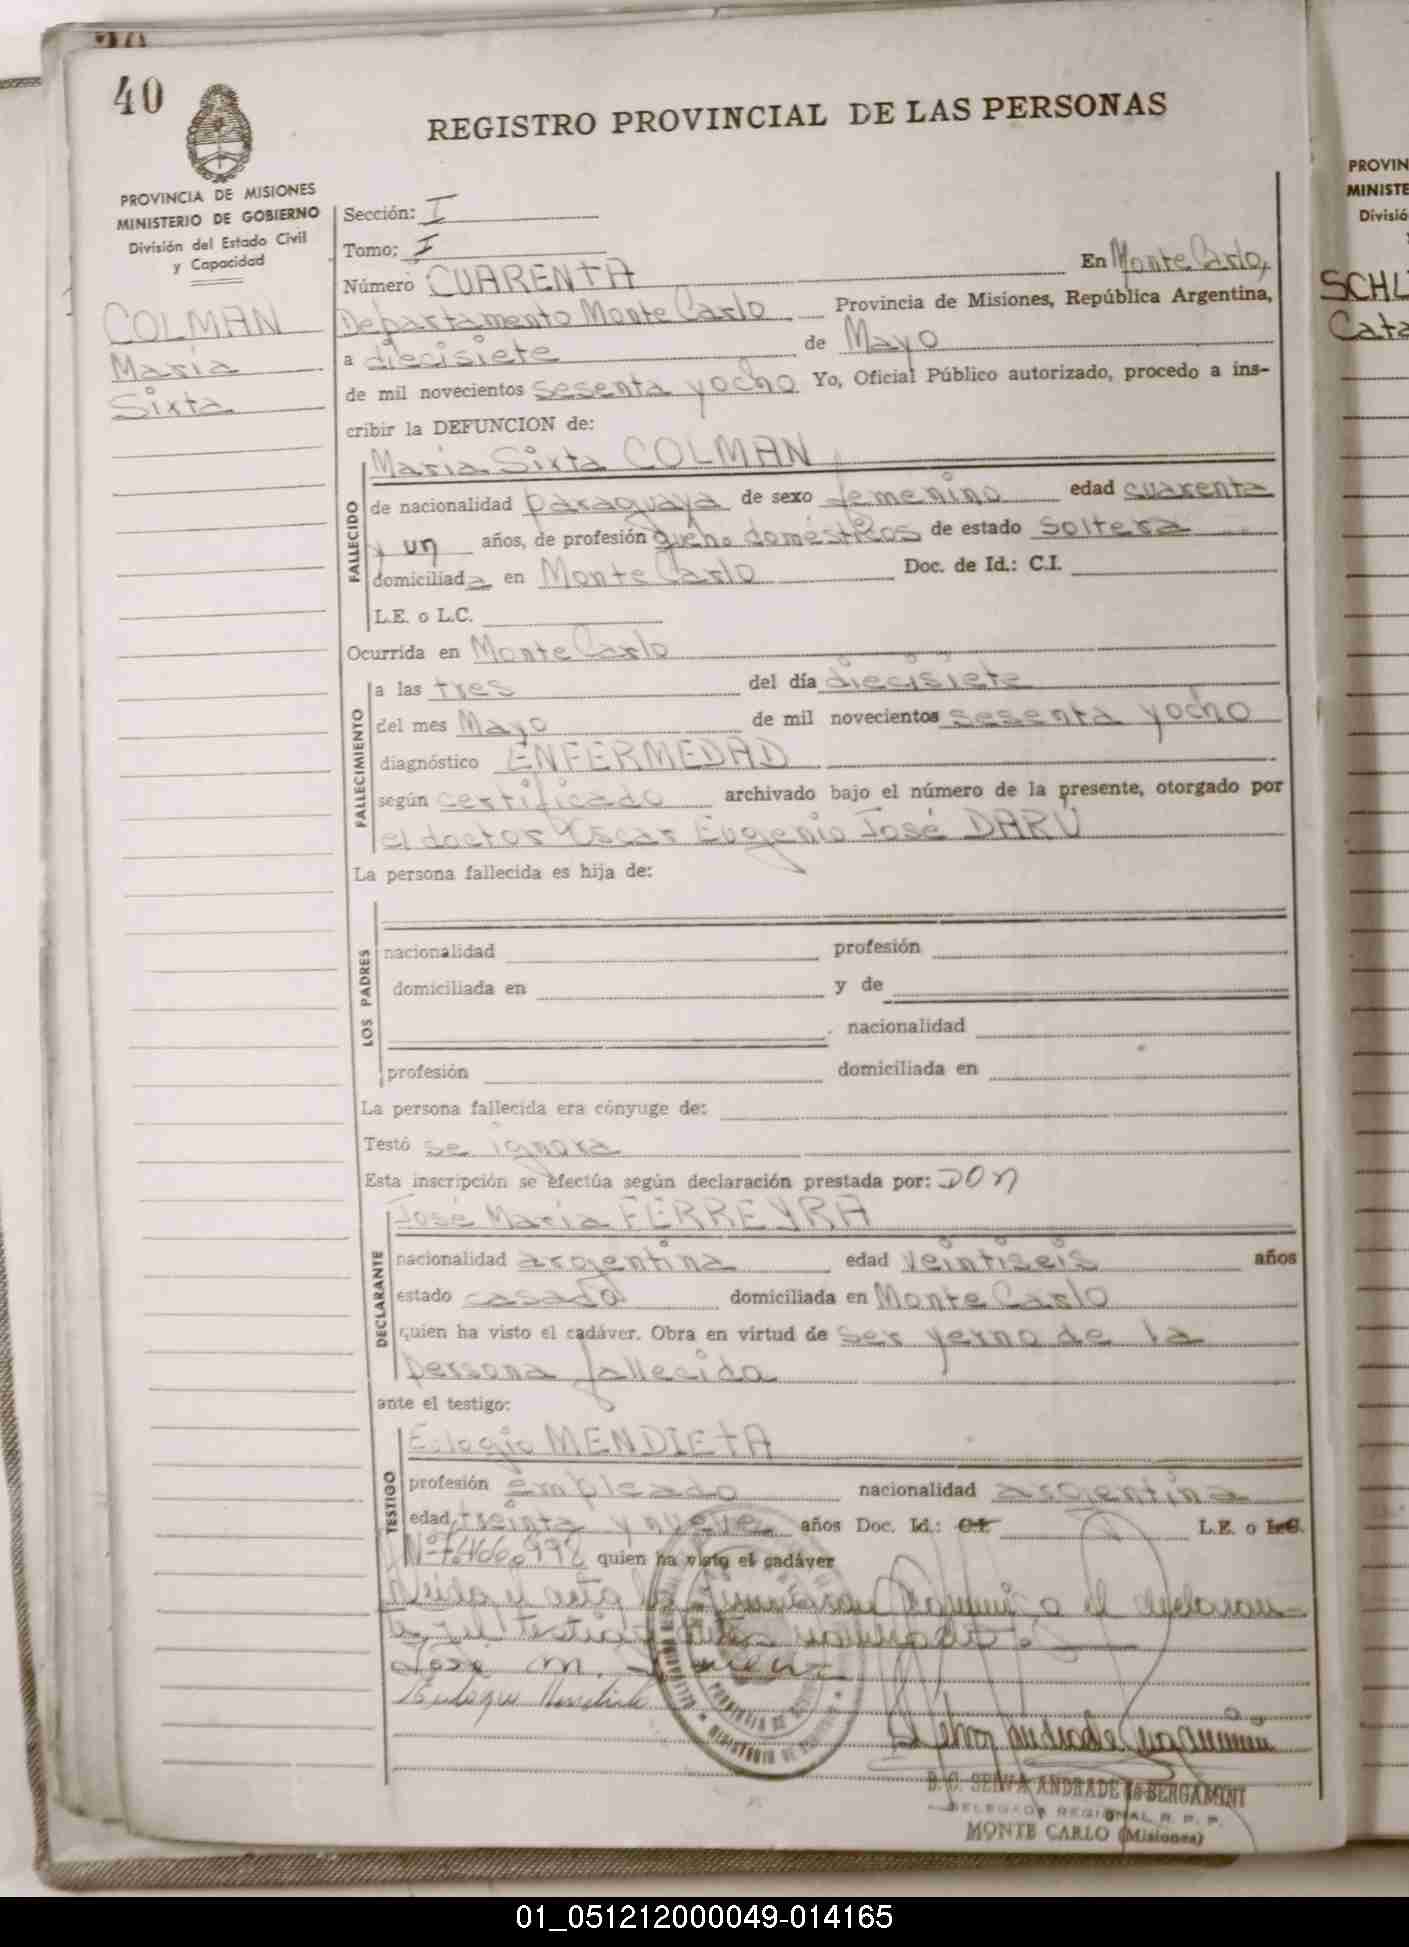 40
REGISTRO PROVINCIAL DE LAS PERSONAS
PROVINCIA DE MISIONES
MINISTERIO DE GOBIERNO
División del Estado Civil
y Capacidad
COLMAN
Maria
Sixta
Sección: I
Tomo: I
Número CUARENTA En Monte Carlo,
Departamento Monte Carlo Provincia de Misiones, República Argentina,
a diecisiete de Mayo
de mil novecientos sesenta y ocho Yo, Oficial Público autorizado, procedo a ins-
cribir la DEFUNCION de:
Maria Sixta COLMAN
FALLECIDO
de nacionalidad paraguaya de sexo femenino edad cuarenta
y un años, de profesión queha. domésticos de estado soltera
domiciliada en Monte Carlo Doc. de Id.: C.I.
L.E. o L.C.
Ocurrida en Monte Carlo
FALLECIMIENTO
a las tres del día diecisiete
del mes Mayo de mil novecientos sesenta y ocho
diagnóstico ENFERMEDAD
según certificado archivado bajo el número de la presente, otorgado por
el doctor Oscar Eugenio José DARÚ
La persona fallecida es hija de:
LOS PADRES
nacionalidad profesión
domiciliada en y de
nacionalidad
profesión domiciliada en
La persona fallecida era cónyuge de:
Testó se ignora
Esta inscripción se efectúa según declaración prestada por: DON
José María FERREYRA
DECLARANTE
nacionalidad argentina edad veintiseis años
estado casado domiciliada en Monte Carlo
quien ha visto el cadáver. Obra en virtud de ser yerno de la
persona fallecida
ante el testigo:
Eulogio MENDIETA
TESTIGO
profesión empleado nacionalidad argentina
edad treinta y nueve años Doc. Id.: C.I. L.E. o L.C.
quien ha visto el cadáver
Leida el acta la firman conmigo el declaran-
te y el testigo
José M.
B. C. SELVA ANDRADE de BERGAMINI
DELEGADA REGIONAL R. P. P.
MONTE CARLO (Misiones)
PROVIN
MINISTE
Divisió
SCHL
Cata
01_051212000049-014165